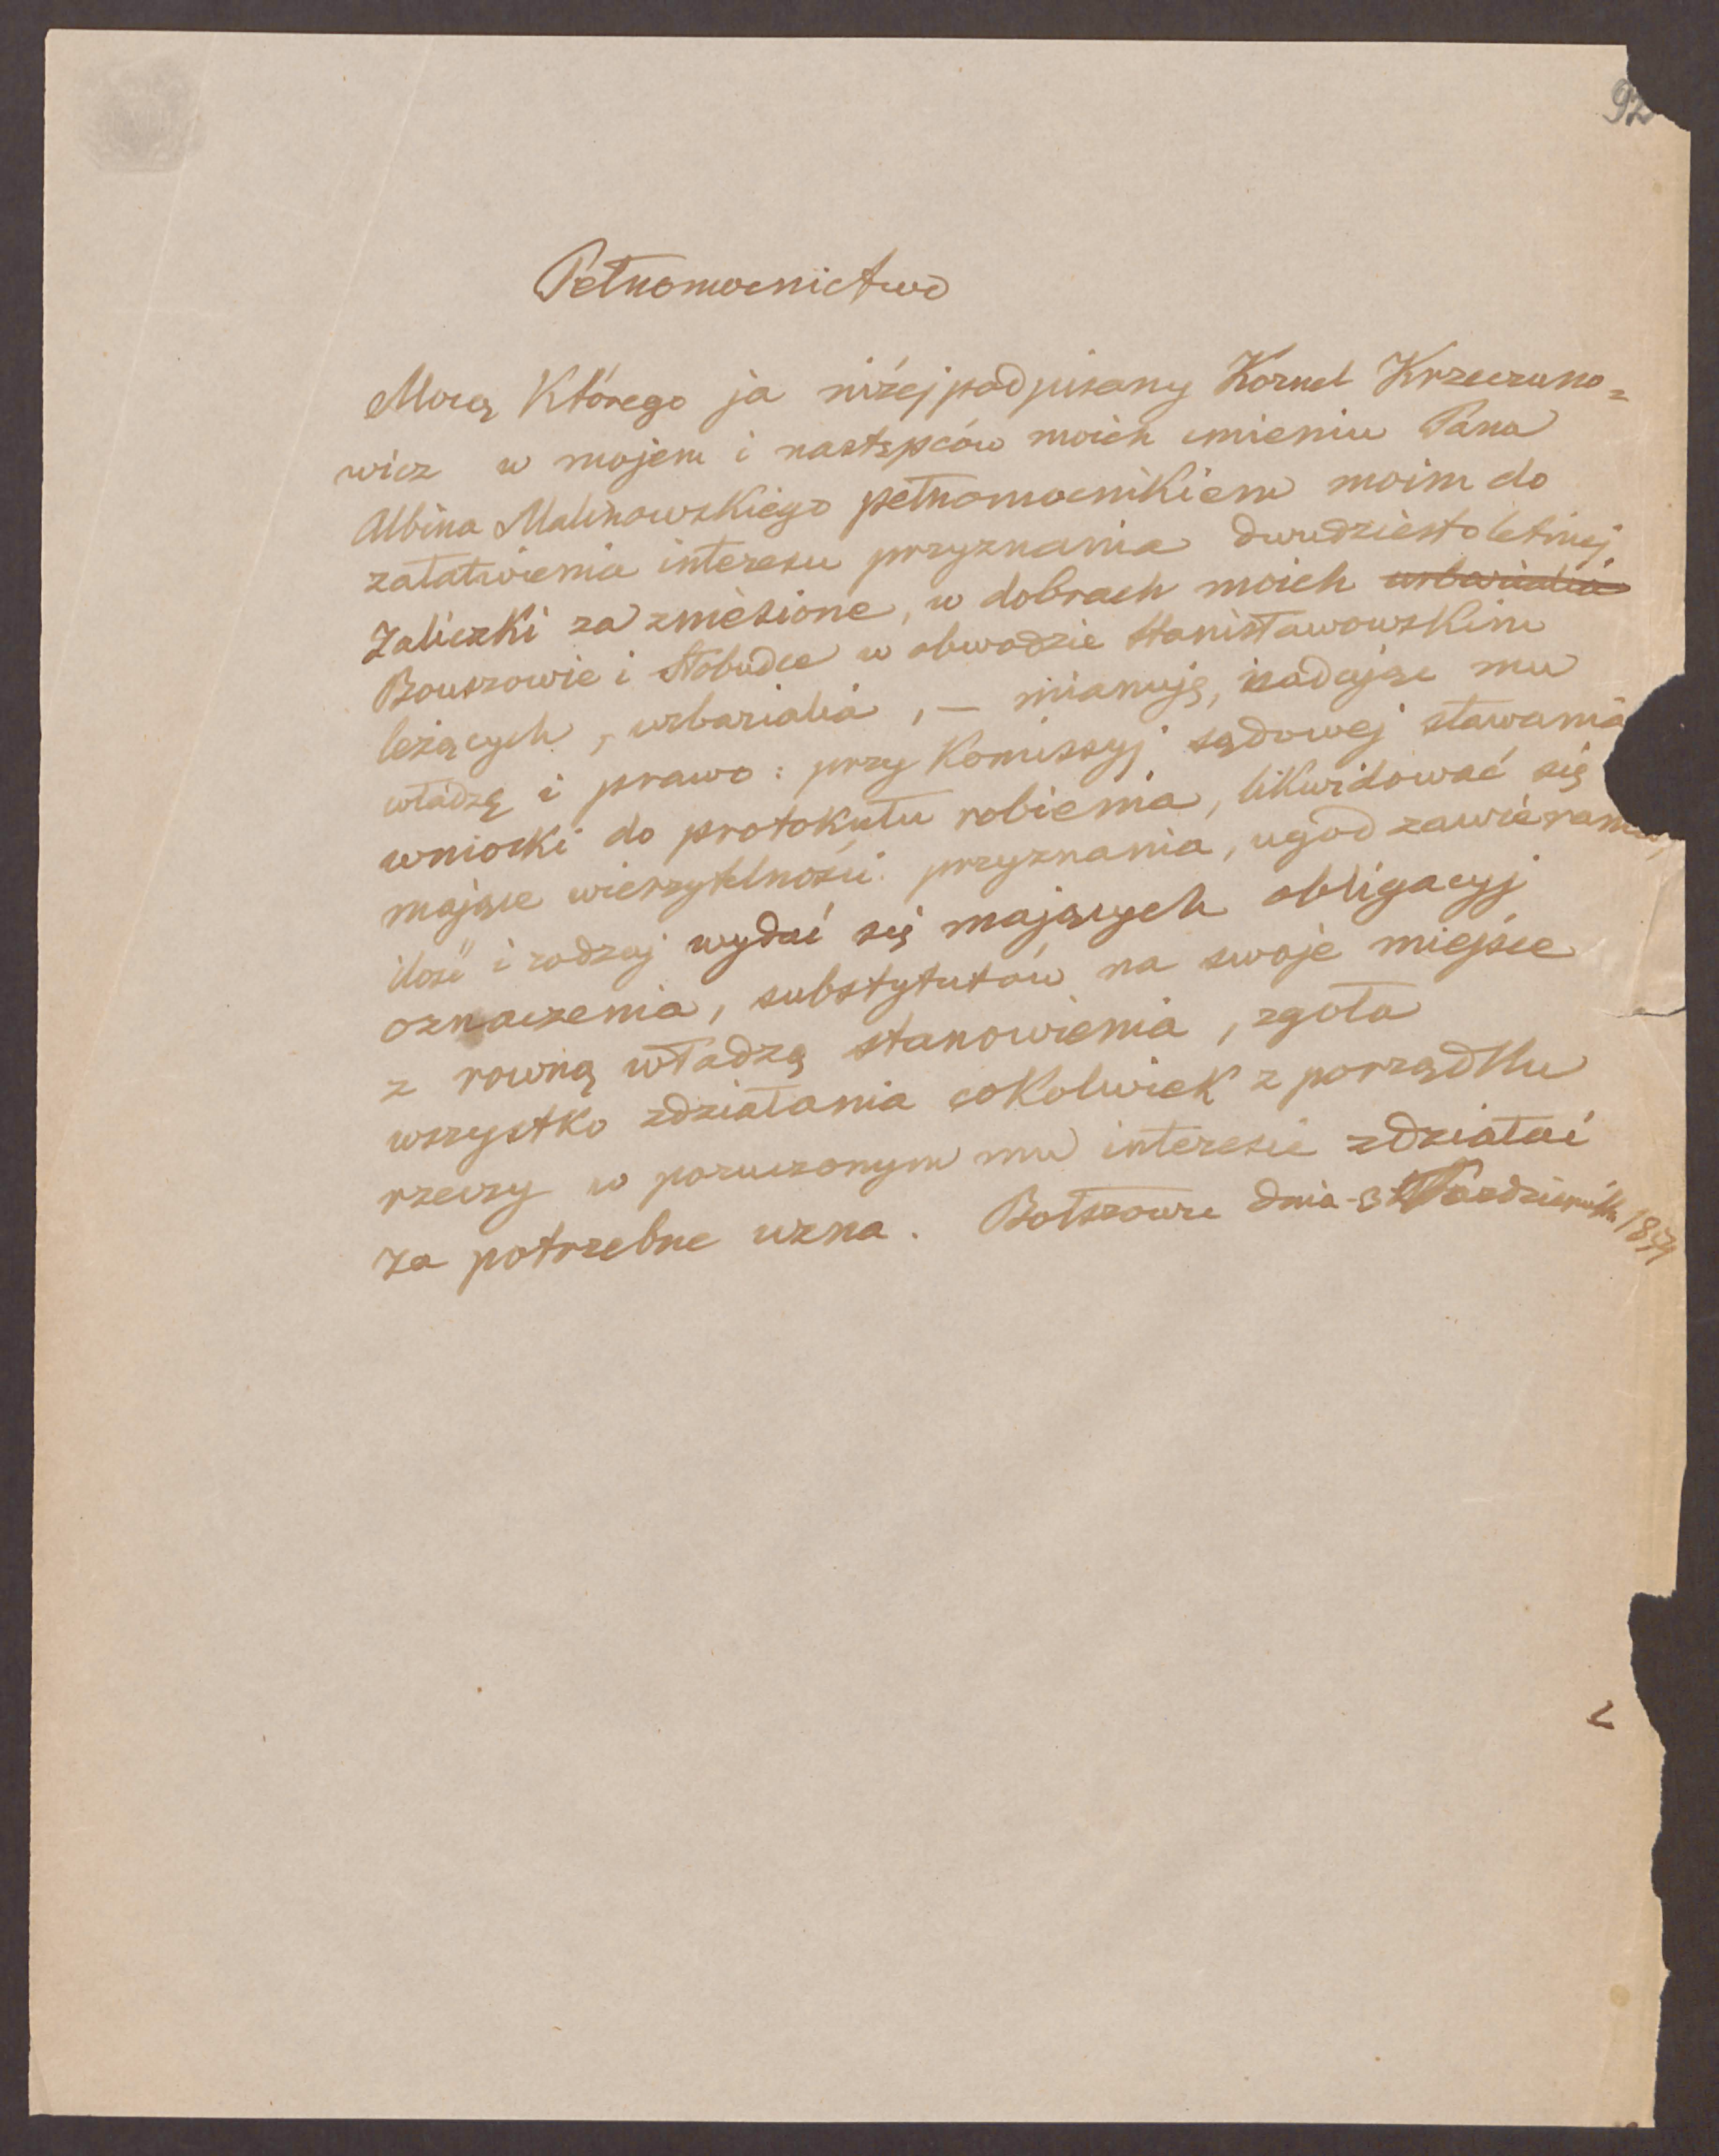 92
Pełnomocnictwo
Mocą Którego ja niżej podpisany Kornel Krzeczuno=
wicz w mojem i następców moich imieniu Pana
Albina Malinowskiego pełnomocnikiem moim do
załatwienia interesu przyznania dwudziestoletniej
Zaliczki za zniesione, w dobrach moich urbarialia
Bouszowie i Słobudce w obwodzie Stanisławowskim
leżących, urbarialia, — mianuję, nadając mu
władzę i prawo: przy Komissyj sądowej stawania
wnioski do protokułu robienia, likwidować się
mające wierzytelności przyznania, ugod zawierania,
ilość i rodzaj wydać się mających obligacyj
oznaczenia, substytutów na swoje miejsce
z rowną władzą stanowienia, zgoła
wszystko zdziałania cokolwiek z porządku
rzeczy w poruczonym mu interesie zdziałać
za potrzebne uzna. Bołszowce dnia 3 Października